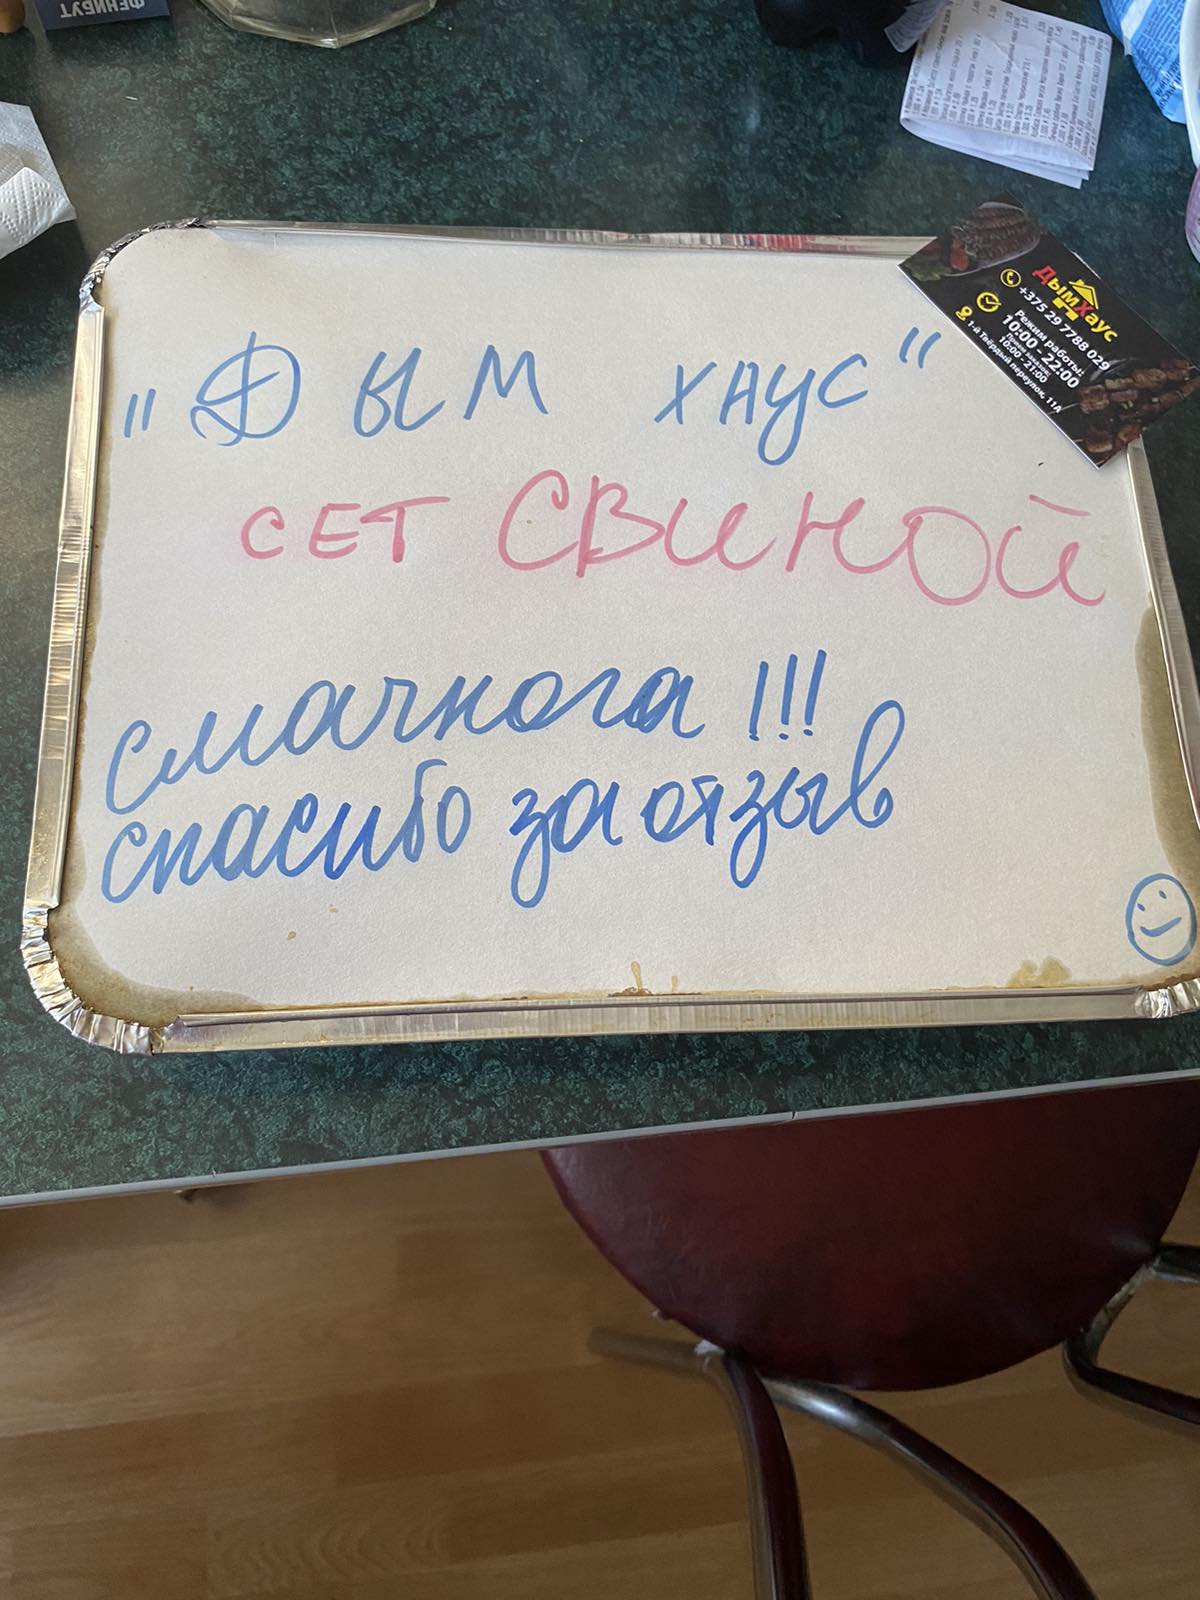 ФЕНИБУТ
"ДЫМ ХАУС"
СЕТ СВИНОЙ
смачнога!!!
спасибо за отзыв
ДымХаус
+375 29 7788 029
Режим работы:
10:00 - 22:00
Прием заказов:
10:00 - 21:00
1-й Твёрдый переулок, 11А